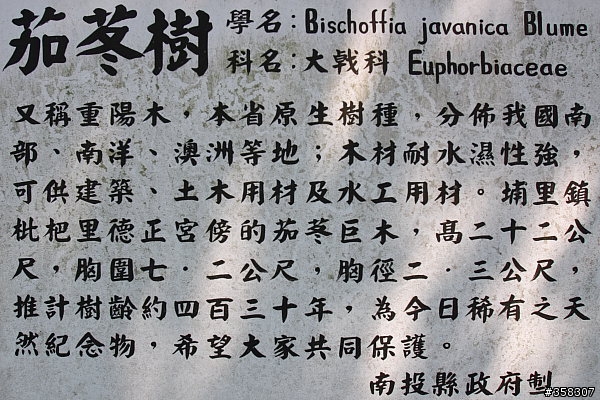 茄苳樹
學名：Bischoffia javanica Blume
科名：大戟科 Euphorbiaceae
又稱重陽木，本省原生樹種，分佈我國南
部、南洋、澳洲等地；木材耐水濕性強，
可供建築、土木用材及水工用材。埔里鎮
枇杷里德正宮傍的茄苳巨木，高二十二公
尺，胸圍七．二公尺，胸徑二．三公尺，
推計樹齡約四百三十年，為今日稀有之天
然紀念物，希望大家共同保護。
南投縣政府製
#358307